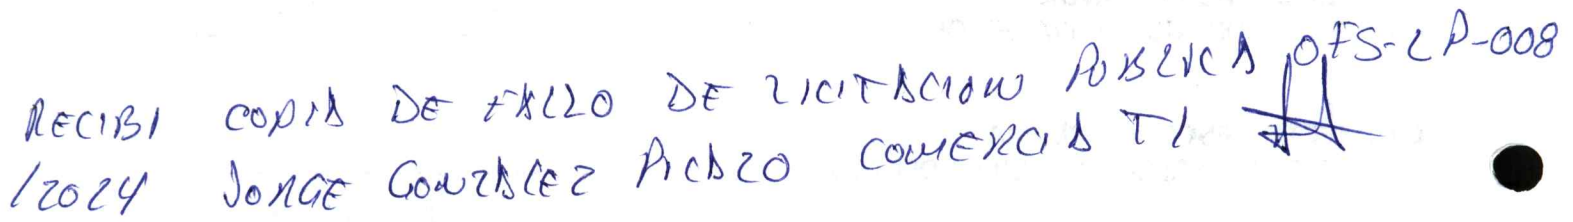 RECIBI COPIA DE FALLO DE LICITACION PUBLICA OFS-LP-008
/2024 JORGE GONZALEZ PICAZO COMERCIA TI